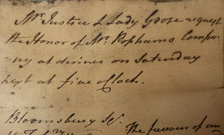 Mr. Justice & Lady Gosse request
the Honor of Mr. Pophams Compa=
=ny at dinner on Saturday
next at five o'Clock.
Bloomsbury Sq.
The favour of an